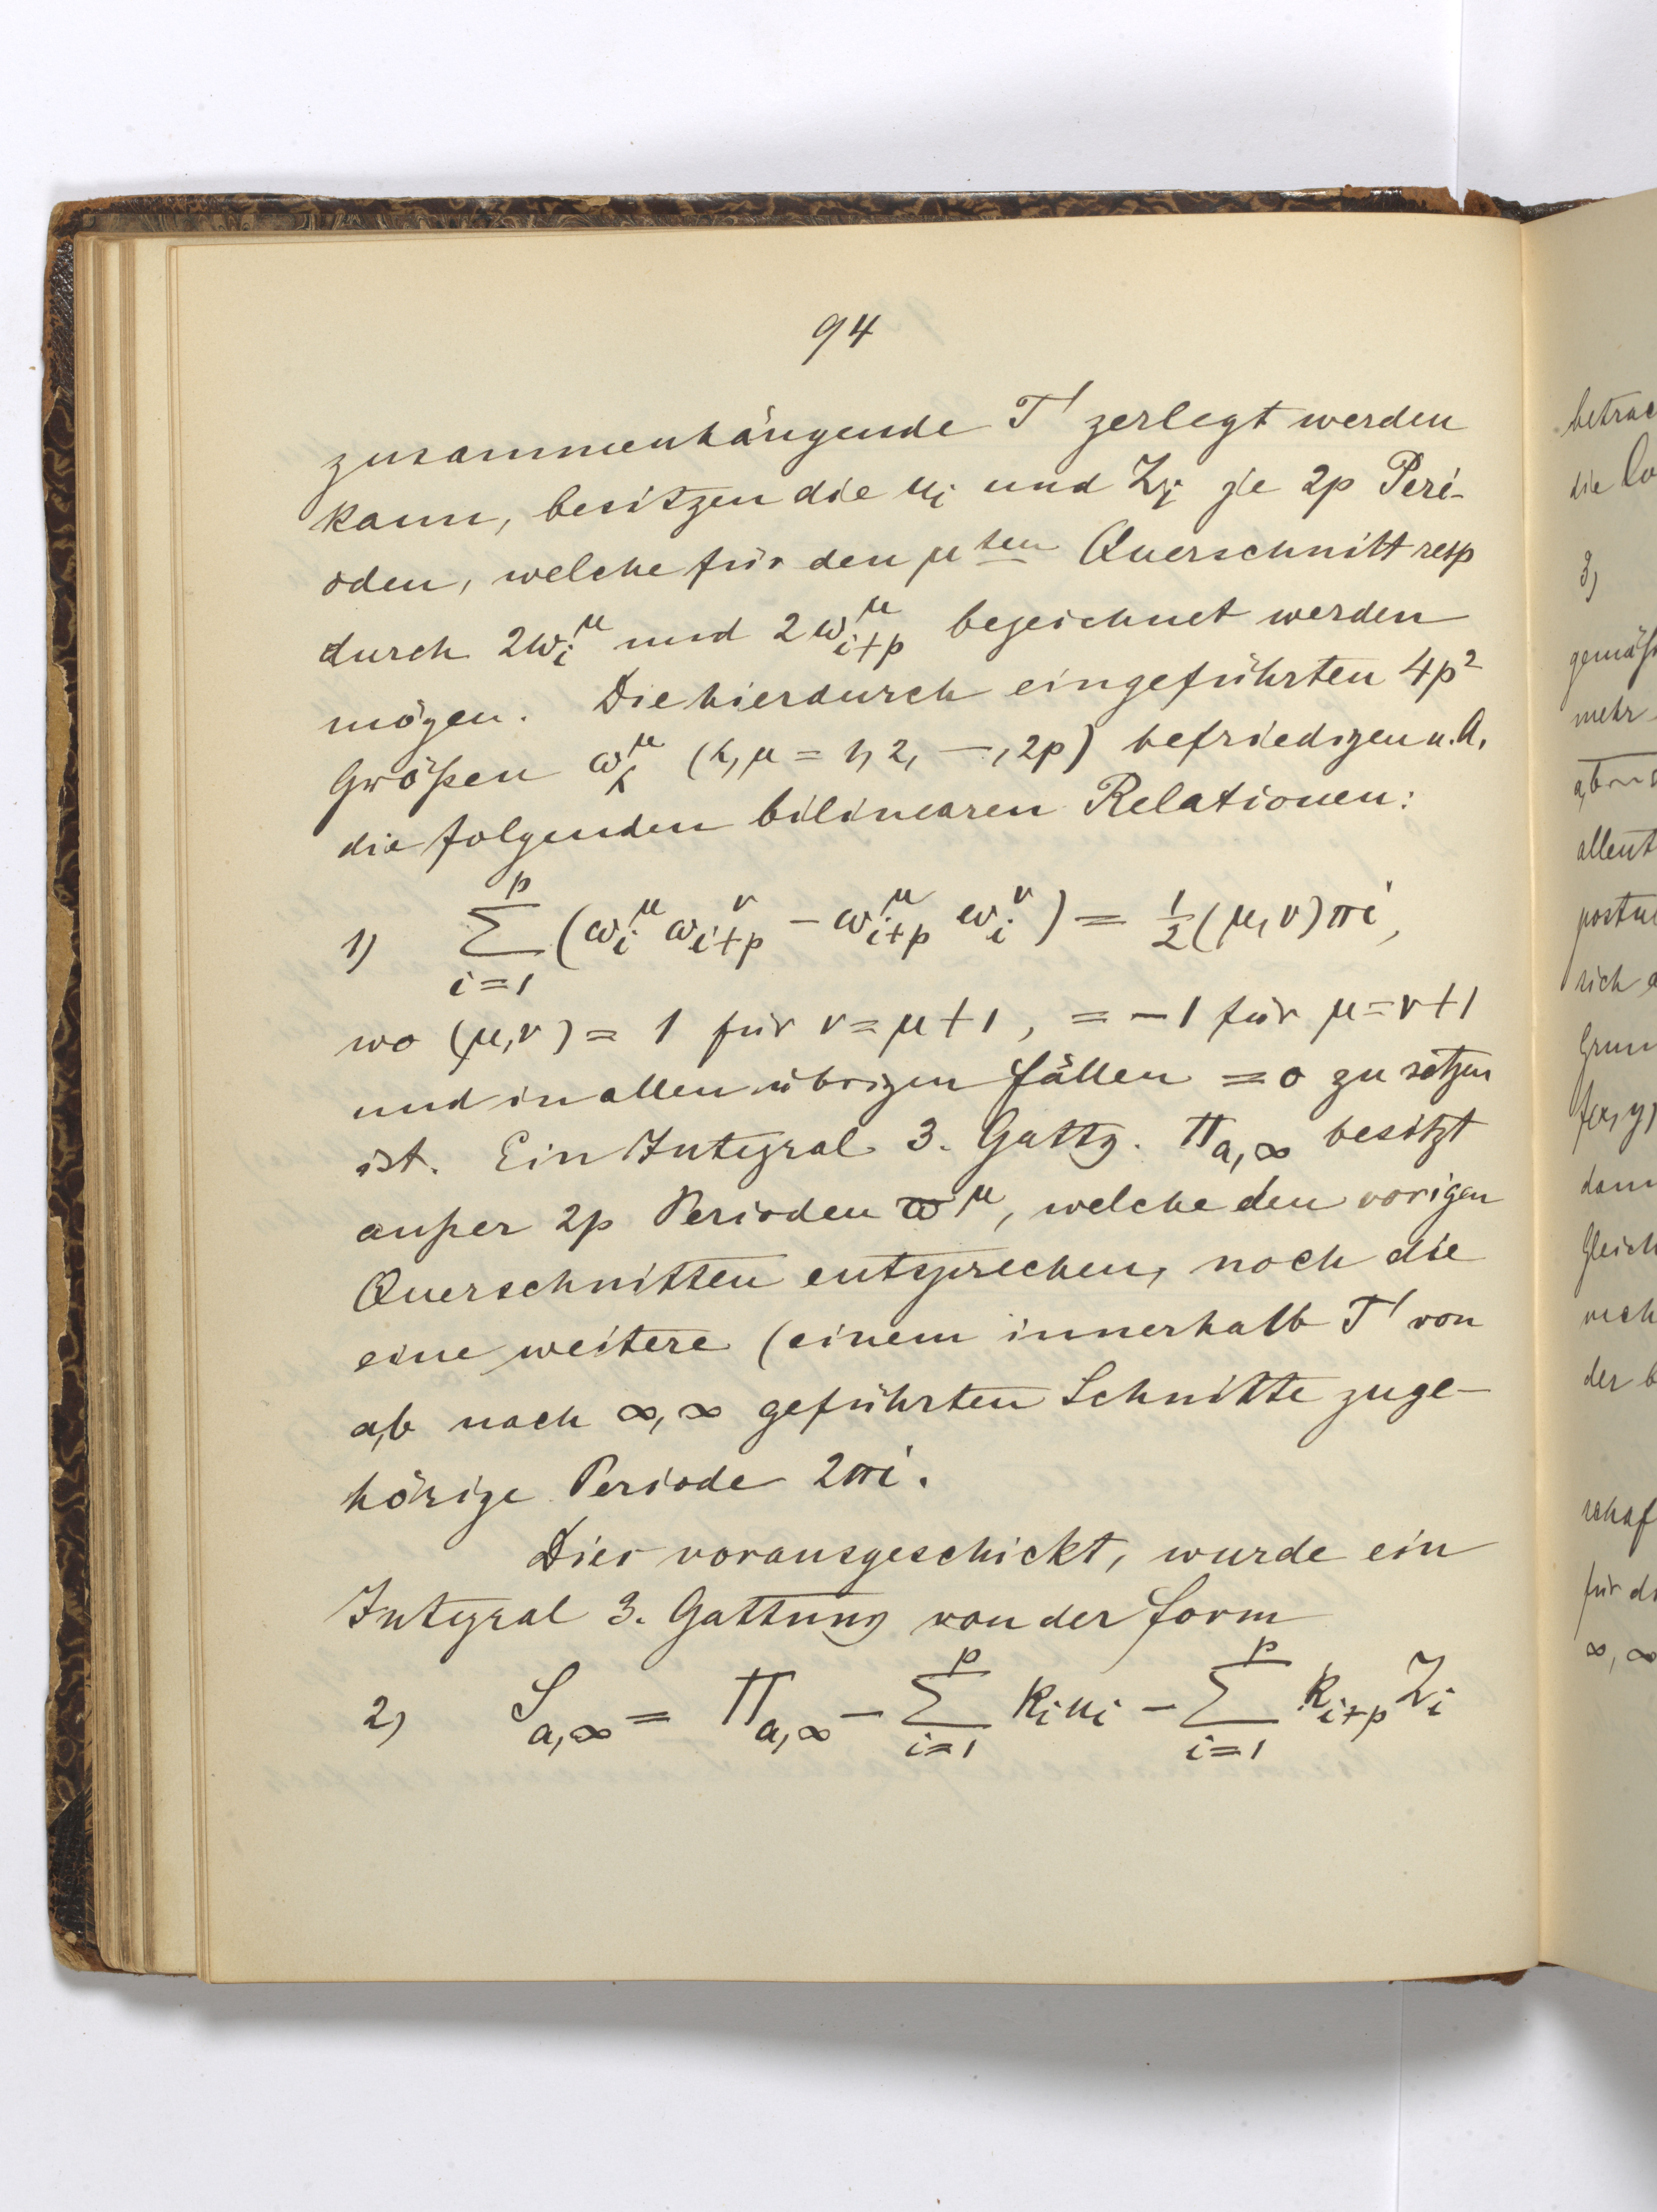 94
zusammenhängende T' zerlegt werden
kann, besitzen die u_i und Z_i je 2p Peri-
oden, welche für den μten Querschnitt resp
durch 2ω_i^μ und 2ω_{i+p}^μ bezeichnet werden
mögen. Die hierdurch eingeführten 4p²
Größen ω_k^μ (k, μ = 1, 2, —, 2p) befriedigen u. A.
die folgenden bilinearen Relationen:
1) ∑_{i=1}^p (ω_i^μ ω_{i+p}^ν − ω_{i+p}^μ ω_i^ν) = ½ (μ, ν) πi,
wo (μ, ν) = 1 für ν = μ + 1, = −1 für μ = ν + 1
und in allen übrigen Fällen = 0 zu setzen
ist. Ein Integral 3. Gattg. Π_{a,∞} besitzt
außer 2p Perioden ϖ^μ, welche den vorigen
Querschnitten entsprechen, noch die
eine weitere (einem innerhalb T' von
a,b nach ∞,∞ geführten Schnitte zuge-
hörige Periode 2πi.
Dies vorausgeschickt, wurde ein
Integral 3. Gattung von der Form
2) S_{a,∞} = Π_{a,∞} − ∑_{i=1}^p k_i u_i − ∑_{i=1}^p k_{i+p} Z_i
die
3)
gemäß
mehr
allent
sich
f(x, y)
der b
für di
∞, ∞